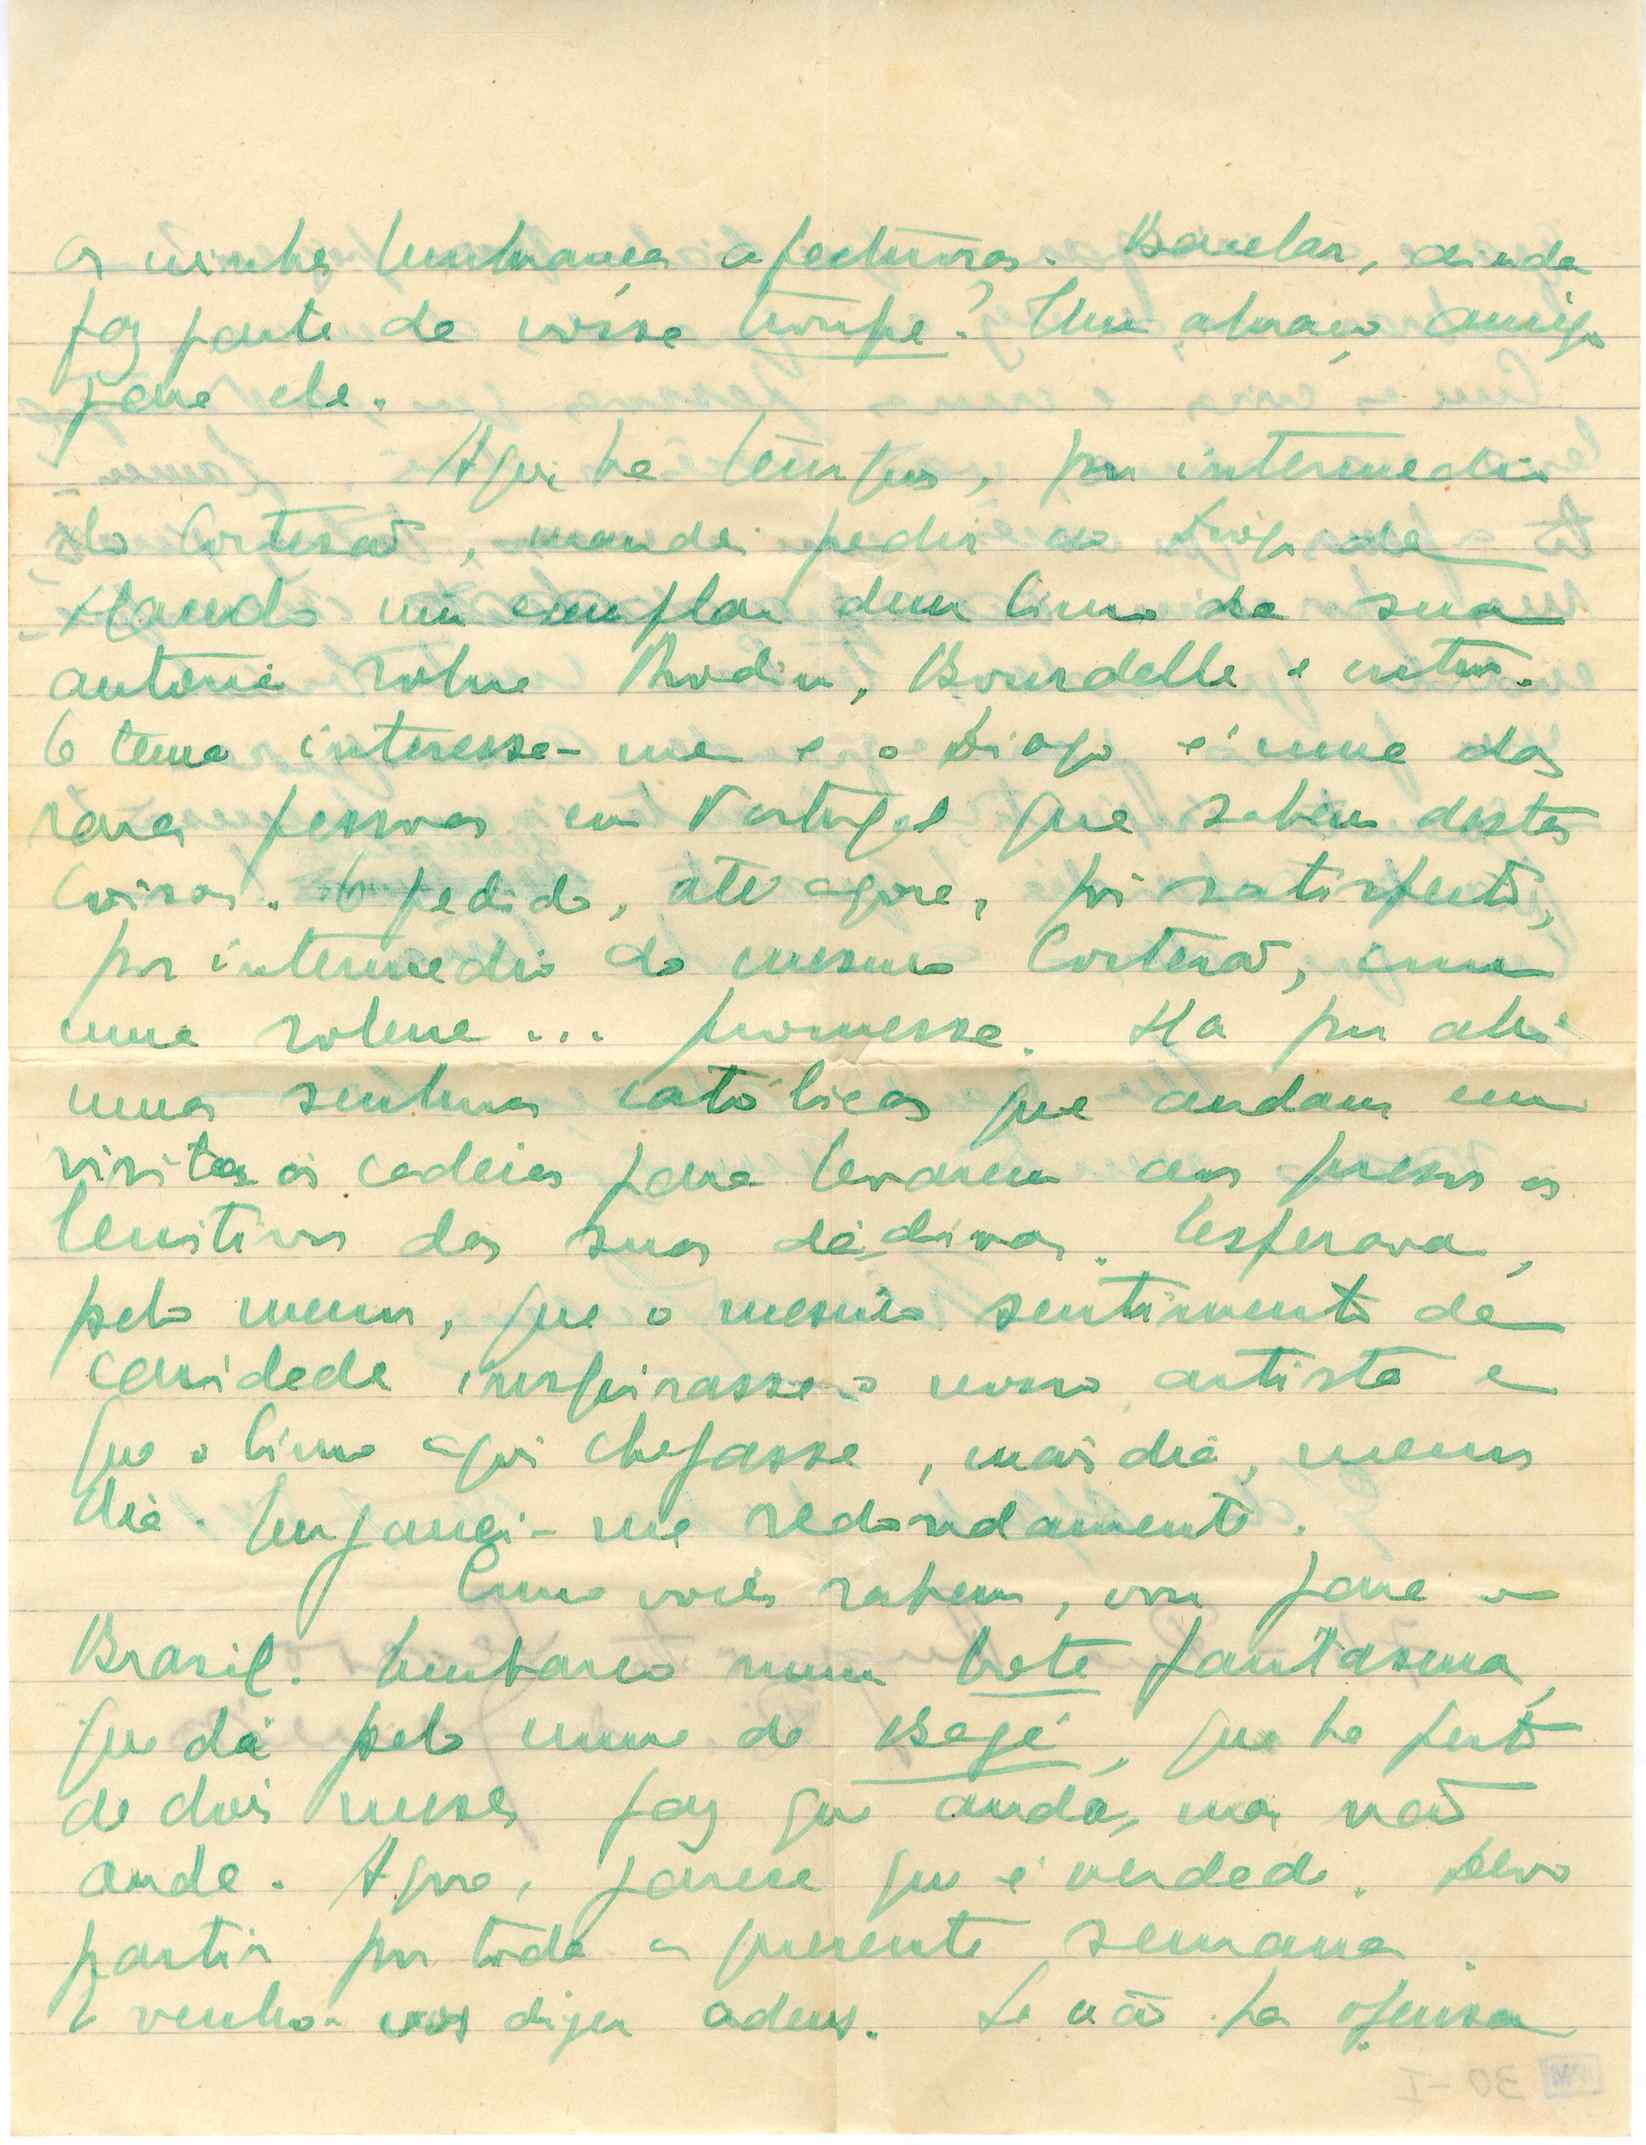 as minhas lembranças afectuosas. Barelar, ainda
faz parte da vossa troupe? Um abraço amigo
para ele.
Aqui ha tempos, por intermedio
do Cortesão, mandei pedir ao Diogo de
Macedo um exemplar dum livro da sua
autoria sobre Rodin, Bourdelle e outros.
O tema interessa-me e o Diogo é uma das
raras pessoas em Portugal que sabem destas
coisas. O pedido, até agora, foi satisfeito,
por intermedio do mesmo Cortesão, com
uma solene... promessa. Ha por ahi
umas senhoras católicas que andam em
visita ás cadeias para levarem aos presos os
lenitivos das suas dádivas. Esperava,
pelo menos, que o mesmo sentimento de
caridade inspirasse o nosso artista e
que o livro aqui chegasse, mais dia, menos
dia. Enganei-me redondamente.
Como vocês sabem, vou para o
Brasil. Embarco num bote fantasma,
que dá pelo nome de Bagé, que ha perto
de dois meses faz que anda, mas não
anda. Agora, parece que é verdade. Devo
partir por toda a presente semana.
E venho-vos dizer adeus. Se não ha ofensa
30-I